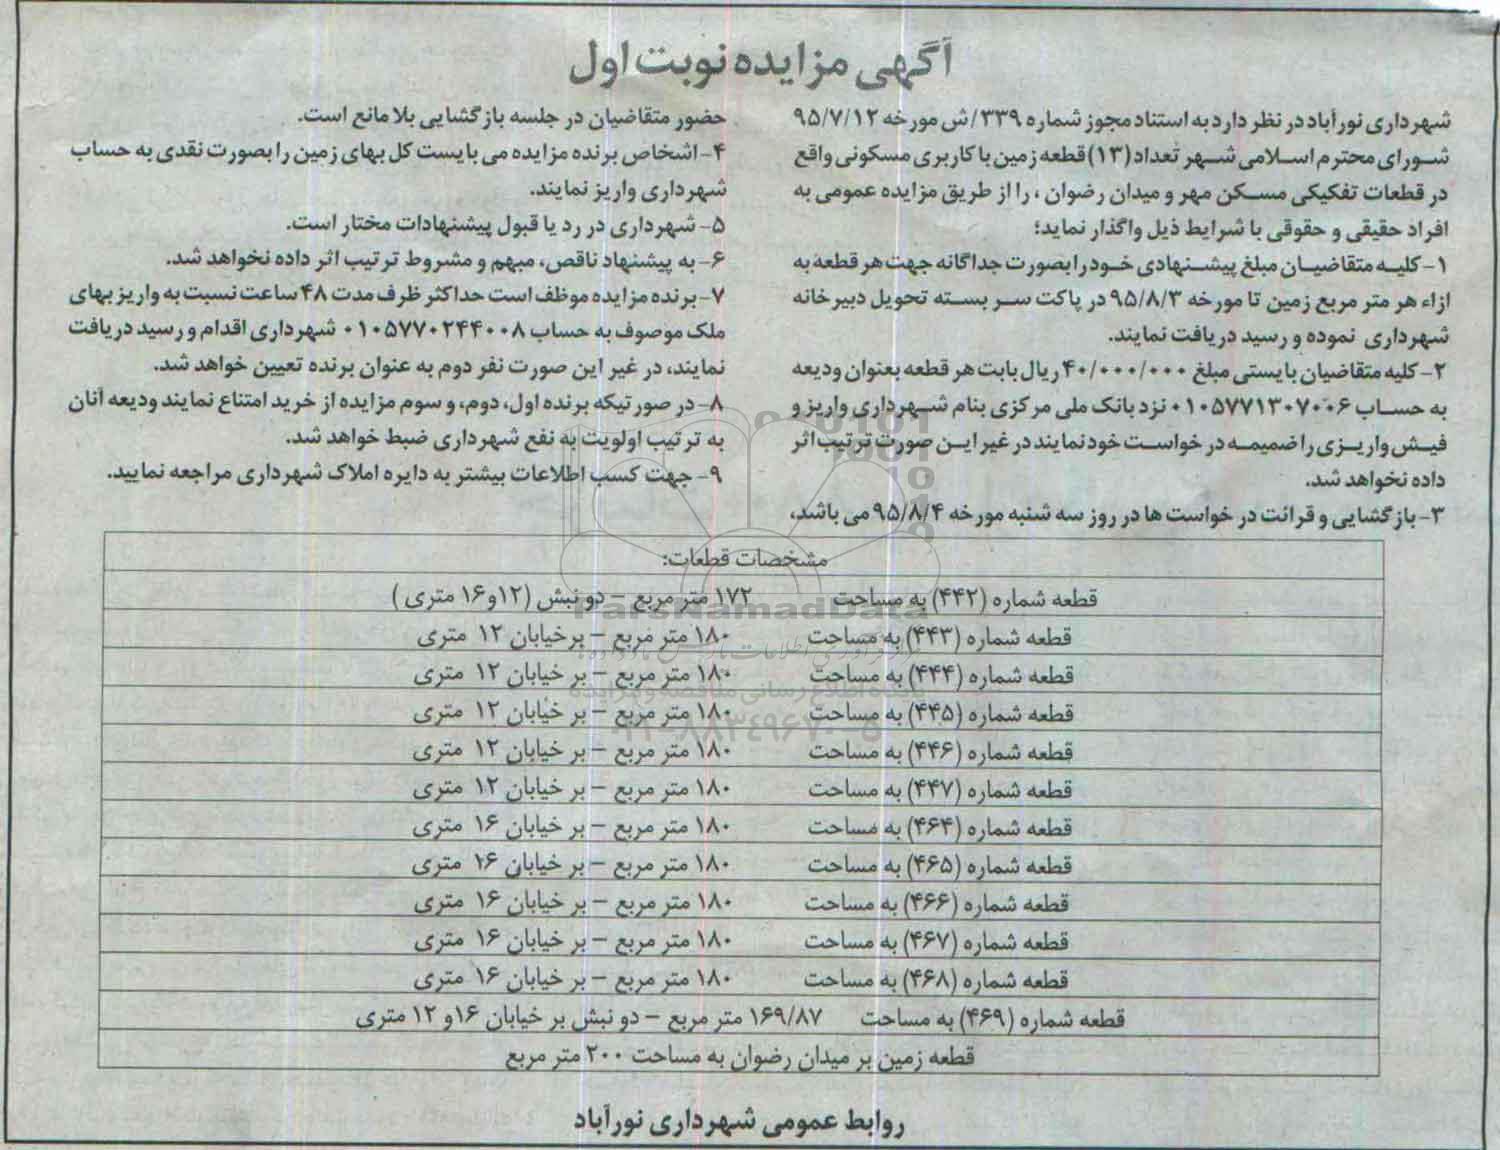 آگهی مزایده نوبت اول
شهرداری نورآباد در نظر دارد به استناد مجوز شماره ۳۳۹/ش مورخه ۹۵/۷/۱۲
شورای محترم اسلامی شهر تعداد (۱۳) قطعه زمین با کاربری مسکونی واقع
در قطعات تفکیکی مسکن مهر و میدان رضوان ، را از طریق مزایده عمومی به
افراد حقیقی و حقوقی با شرایط ذیل واگذار نماید؛
۱- کلیه متقاضیان مبلغ پیشنهادی خود را بصورت جداگانه جهت هر قطعه به
ازاء هر متر مربع زمین تا مورخه ۹۵/۸/۳ در پاکت سر بسته تحویل دبیرخانه
شهرداری نموده و رسید دریافت نمایند.
۲- کلیه متقاضیان بایستی مبلغ ۴۰/۰۰۰/۰۰۰ ریال بابت هر قطعه بعنوان ودیعه
به حساب ۰۱۰۵۷۷۱۳۰۷۰۰۶ نزد بانک ملی مرکزی بنام شهرداری واریز و
فیش واریزی را ضمیمه درخواست خود نمایند در غیر این صورت ترتیب اثر
داده نخواهد شد.
۳- بازگشایی و قرائت درخواست ها در روز سه شنبه مورخه ۹۵/۸/۴ می باشد،
حضور متقاضیان در جلسه بازگشایی بلامانع است.
۴- اشخاص برنده مزایده می بایست کل بهای زمین را بصورت نقدی به حساب
شهرداری واریز نمایند.
۵- شهرداری در رد یا قبول پیشنهادات مختار است.
۶- به پیشنهاد ناقص، مبهم و مشروط ترتیب اثر داده نخواهد شد.
۷- برنده مزایده موظف است حداکثر ظرف مدت ۴۸ ساعت نسبت به واریز بهای
ملک موصوف به حساب ۰۱۰۵۷۷۰۲۴۴۰۰۸ شهرداری اقدام و رسید دریافت
نمایند، در غیر این صورت نفر دوم به عنوان برنده تعیین خواهد شد.
۸- در صورتیکه برنده اول، دوم، و سوم مزایده از خرید امتناع نمایند ودیعه آنان
به ترتیب اولویت به نفع شهرداری ضبط خواهد شد.
۹- جهت کسب اطلاعات بیشتر به دایره املاک شهرداری مراجعه نمایید.
مشخصات قطعات:
قطعه شماره (۴۴۲) به مساحت ۱۷۲ متر مربع – دو نبش (۱۲و۱۶ متری )
قطعه شماره (۴۴۳) به مساحت ۱۸۰ متر مربع – برخیابان ۱۲ متری
قطعه شماره (۴۴۴) به مساحت ۱۸۰ متر مربع – بر خیابان ۱۲ متری
قطعه شماره (۴۴۵) به مساحت ۱۸۰ متر مربع – بر خیابان ۱۲ متری
قطعه شماره (۴۴۶) به مساحت ۱۸۰ متر مربع – بر خیابان ۱۲ متری
قطعه شماره (۴۴۷) به مساحت ۱۸۰ متر مربع – بر خیابان ۱۲ متری
قطعه شماره (۴۶۴) به مساحت ۱۸۰ متر مربع – بر خیابان ۱۶ متری
قطعه شماره (۴۶۵) به مساحت ۱۸۰ متر مربع – بر خیابان ۱۶ متری
قطعه شماره (۴۶۶) به مساحت ۱۸۰ متر مربع – بر خیابان ۱۶ متری
قطعه شماره (۴۶۷) به مساحت ۱۸۰ متر مربع – بر خیابان ۱۶ متری
قطعه شماره (۴۶۸) به مساحت ۱۸۰ متر مربع – بر خیابان ۱۶ متری
قطعه شماره (۴۶۹) به مساحت ۱۶۹/۸۷ متر مربع – دو نبش بر خیابان ۱۶و ۱۲ متری
قطعه زمین بر میدان رضوان به مساحت ۲۰۰ متر مربع
روابط عمومی شهرداری نورآباد
ParsNamadData
پایگاه اطلاع رسانی مناقصه و مزایده
۰۲۱-۸۸۳۴۹۶۷۰-۵